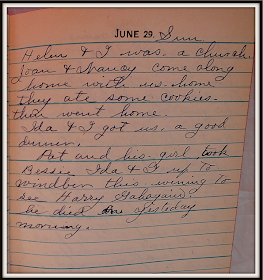 JUNE 29, Sun
Helen & I was a church.
Joan & Nancy come along
home with us. home
they ate some cookies.
then went home.
Ida & I got us a good
dinner.
Pet and his girl took
Bessie Ida & I up to
Windber this evining to
see Harry
he died on yisteday
morning.